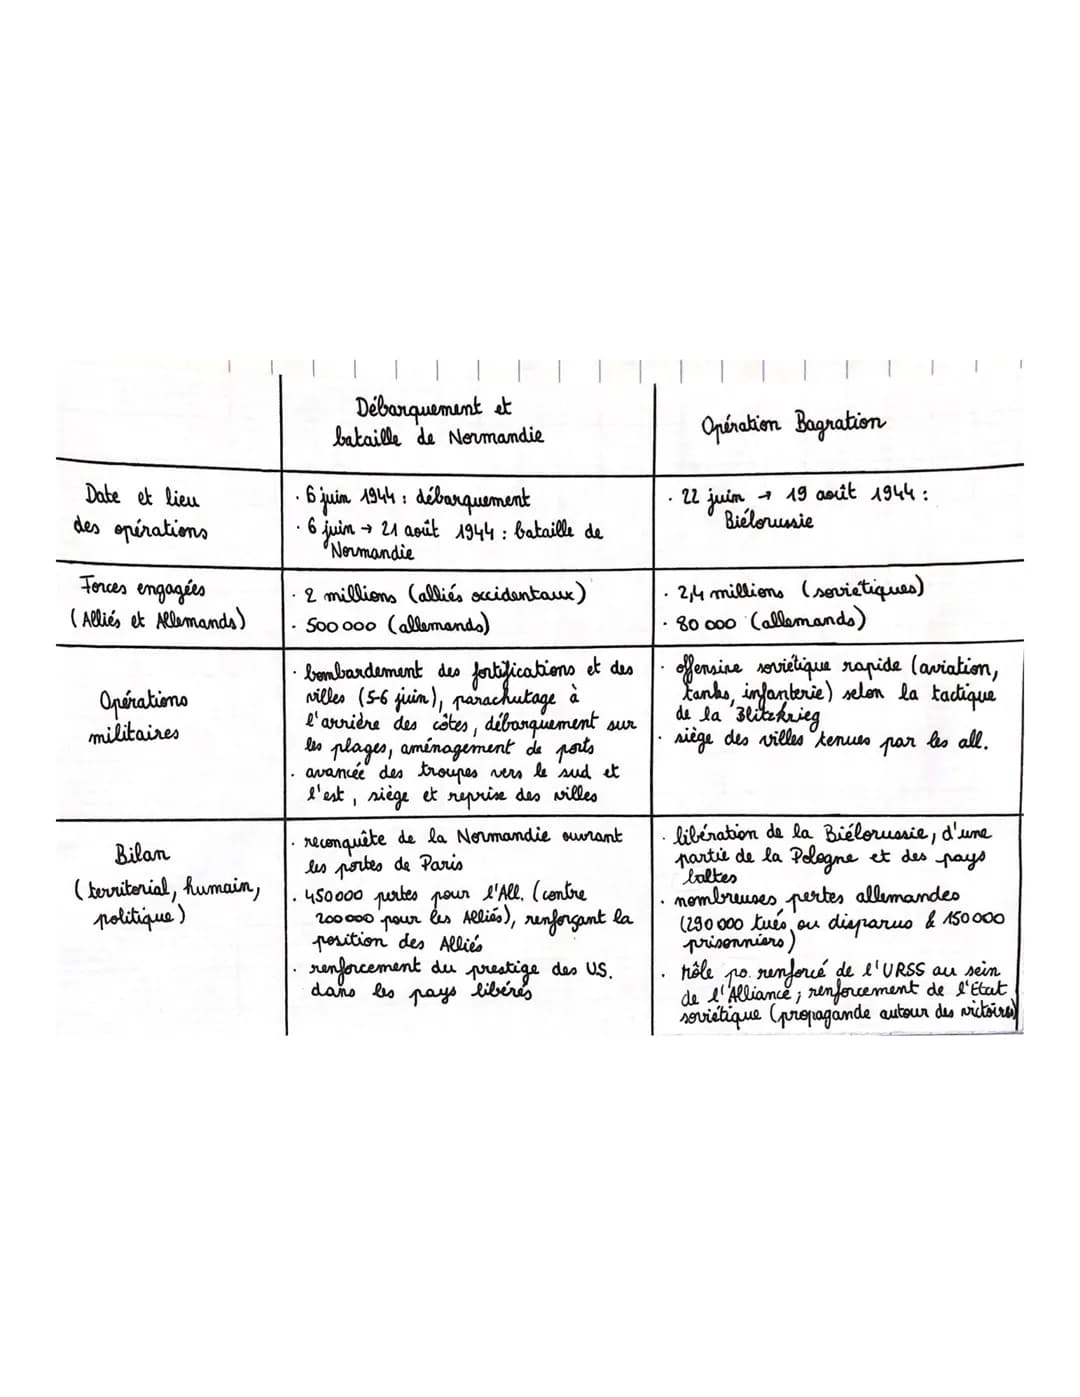 Débarquement et
bataille de Normandie
Opération Bagration
Date et lieu
des opérations
. 6 juin 1944 : débarquement
. 6 juin → 21 août 1944 : bataille de
Normandie
. 22 juin → 19 août 1944 :
Biélorussie
Forces engagées
(Alliés et Allemands)
. 2 millions (alliés occidentaux)
. 500 000 (allemands)
. 2,4 millions (soviétiques)
. 80 000 (allemands)
Opérations
militaires
. bombardement des fortifications et des
villes (5-6 juin), parachutage à
l'arrière des côtes, débarquement sur
les plages, aménagement de ports
. avancée des troupes vers le sud et
l'est, siège et reprise des villes
. offensive soviétique rapide (aviation,
tanks, infanterie) selon la tactique
de la Blitzkrieg
. siège des villes tenues par les all.
Bilan
(territorial, humain,
politique)
. reconquête de la Normandie ouvrant
les portes de Paris
. 450000 pertes pour l'All. (contre
200000 pour les Alliés), renforçant la
position des Alliés
. renforcement du prestige des US.
dans les pays libérés
. libération de la Biélorussie, d'une
partie de la Pologne et des pays
baltes
. nombreuses pertes allemandes
(290 000 tués ou disparus & 150 000
prisonniers)
. rôle po. renforcé de l'URSS au sein
de l'Alliance ; renforcement de l'État
soviétique (propagande autour des victoires)